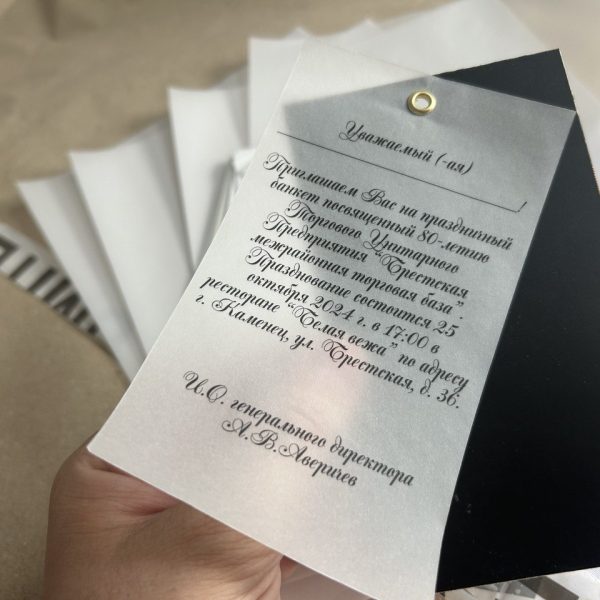 Уважаемый (-ая)
____________________!
Приглашаем Вас на праздничный
банкет посвященный 80-летию
Торгового Унитарного
Предприятия “Брестская
межрайонная торговая база”.
Празднование состоится 25
октября 2024 г. в 17:00 в
ресторане “Белая вежа” по адресу
г. Каменец, ул. Брестская, д. 36.
И.О. генерального директора
А.В.Аверичев